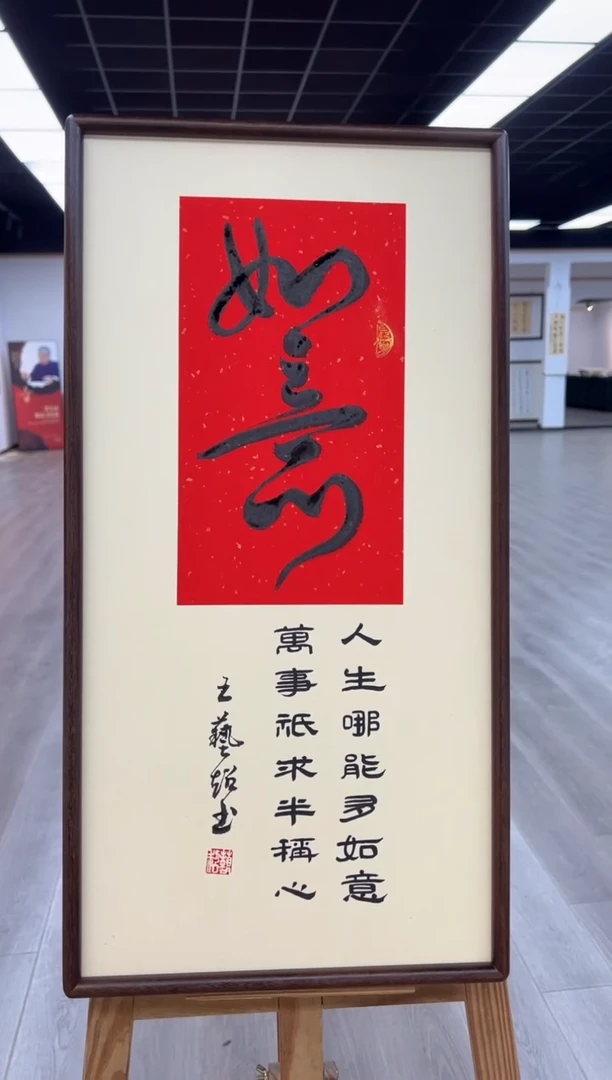 如意
人生哪能多如意
萬事祇求半稱心
王藝